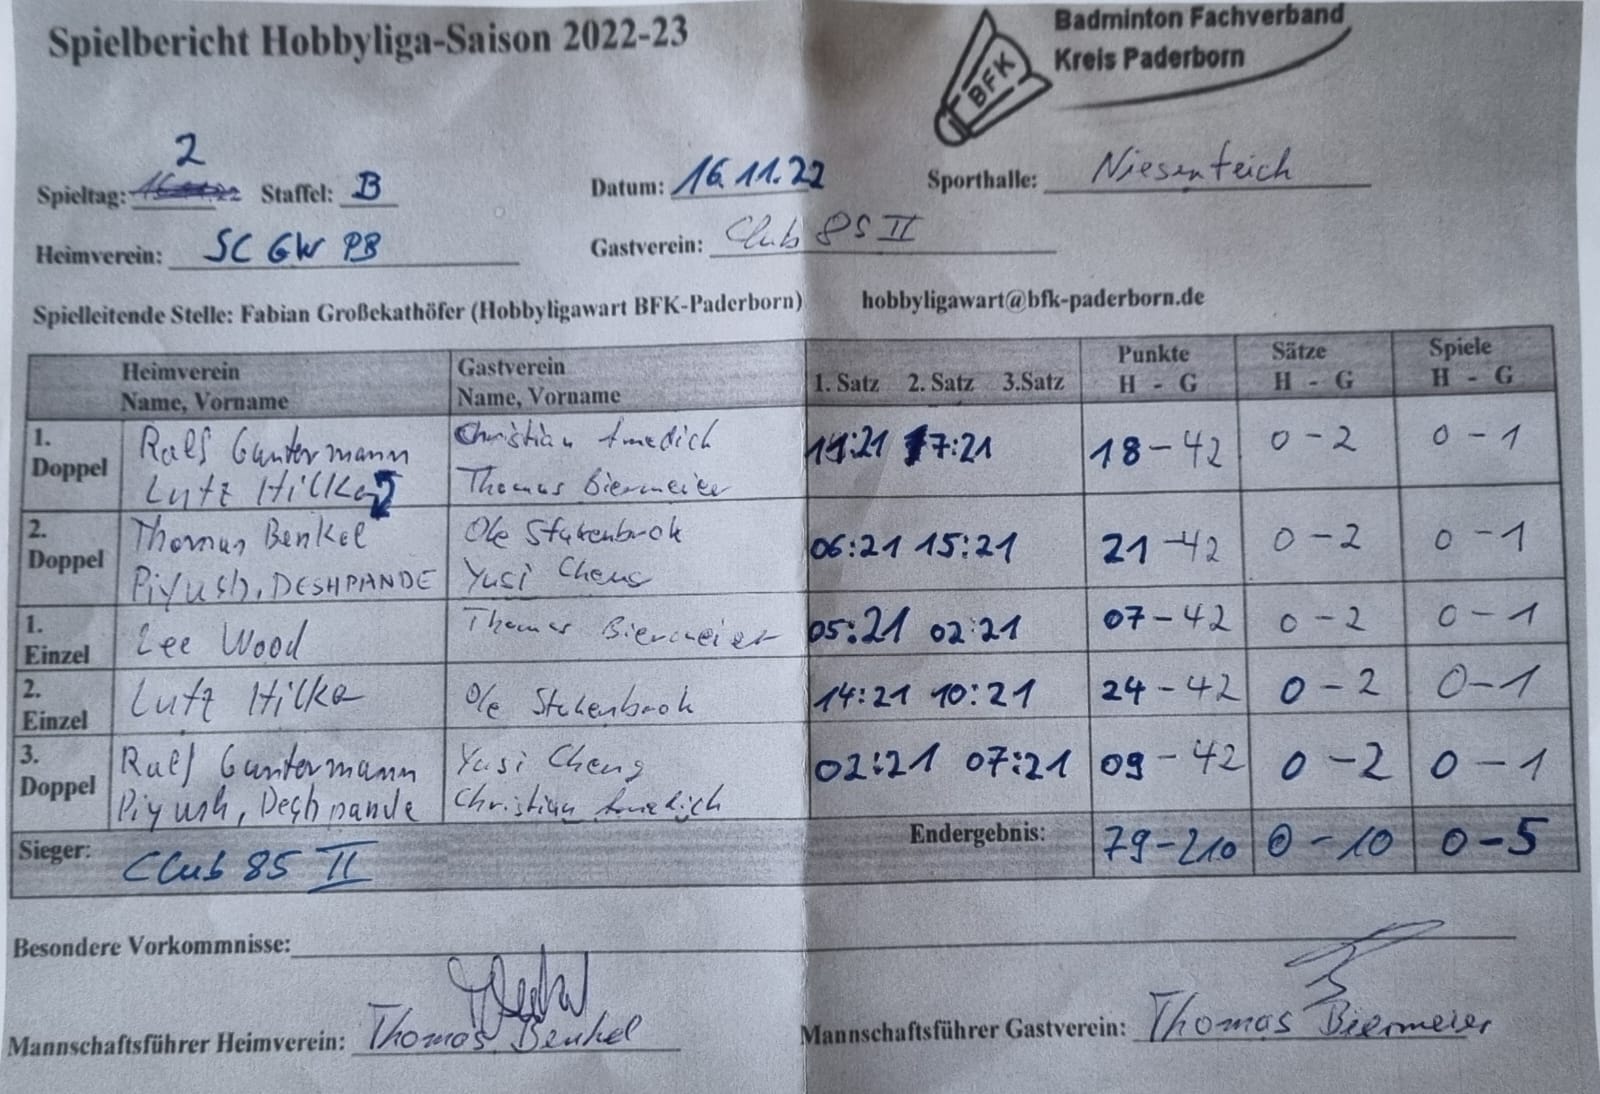 Spielbericht Hobbyliga-Saison 2022-23
Badminton Fachverband
Kreis Paderborn
BFK
2
Spieltag: Staffel: B Datum: 16.11.22 Sporthalle: Niesenteich
Heimverein: SC GW PB Gastverein: Club 85 II
Spielleitende Stelle: Fabian Großekathöfer (Hobbyligawart BFK-Paderborn) hobbyligawart@bfk-paderborn.de
Heimverein Gastverein Punkte Sätze Spiele
Name, Vorname Name, Vorname 1. Satz 2. Satz 3.Satz H - G H - G H - G
1. Ralf Guntermann Christian
Doppel 11:21 7:21 18-42 0-2 0-1
Lutz Hilke Thomas Biermeier
2. Thomas Benkel Ole Stukenbrok
Doppel 06:21 15:21 21-42 0-2 0-1
Piyush, DESHPANDE Yusi Cheng
1. Lee Wood Thomas Biermeier 05:21 02:21 07-42 0-2 0-1
Einzel
2. Lutz Hilke Ole Stukenbrok 14:21 10:21 24-42 0-2 0-1
Einzel
3. Ralf Guntermann Yusi Cheng 02:21 07:21 09-42 0-2 0-1
Doppel
Piyush, Deshpande Christian
Sieger: Club 85 II Endergebnis: 79-210 0-10 0-5
Besondere Vorkommnisse:
Mannschaftsführer Heimverein: Thomas Benkel Mannschaftsführer Gastverein: Thomas Biermeier